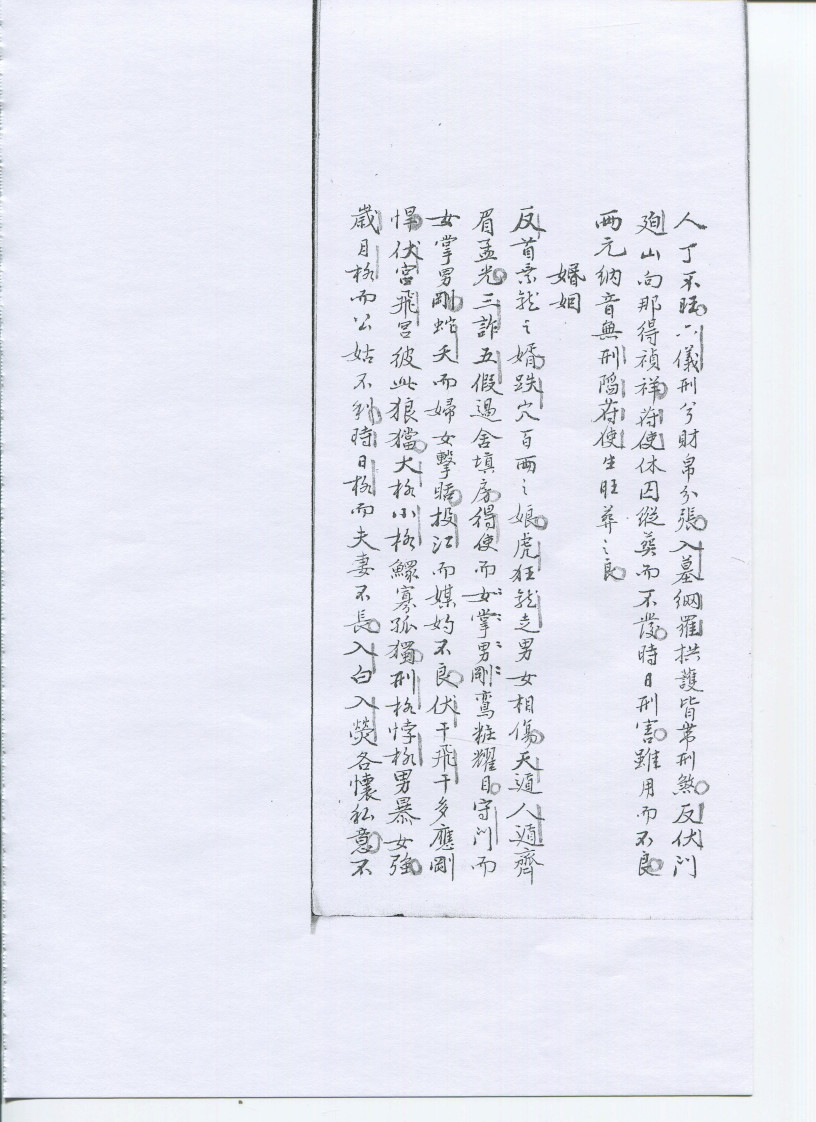 人丁不旺六儀刑兮財帛分張入墓網羅拱護皆常刑煞反伏門
廹山向那得禎祥符使休囚縱葬而不發時日刑害雖用而不良
兩元納音無刑陷符使生旺葬之良
婚姻
反首青龍之婿跌穴百両之娘虎狂龍走男女相傷天遁人遁齊
眉孟光三詐五假過舍填房得使而女掌男剛鸞粧耀目守門而
女掌男剛蛇夭而婦女擊晤投江而媒妁不良伏干飛干多應剛
悍伏宮飛宮彼此狼獷大格小格鰥寡孤獨刑格悖格男暴女強
歲月格而公姑不利時日格而夫妻不長入白入熒各懷私意不